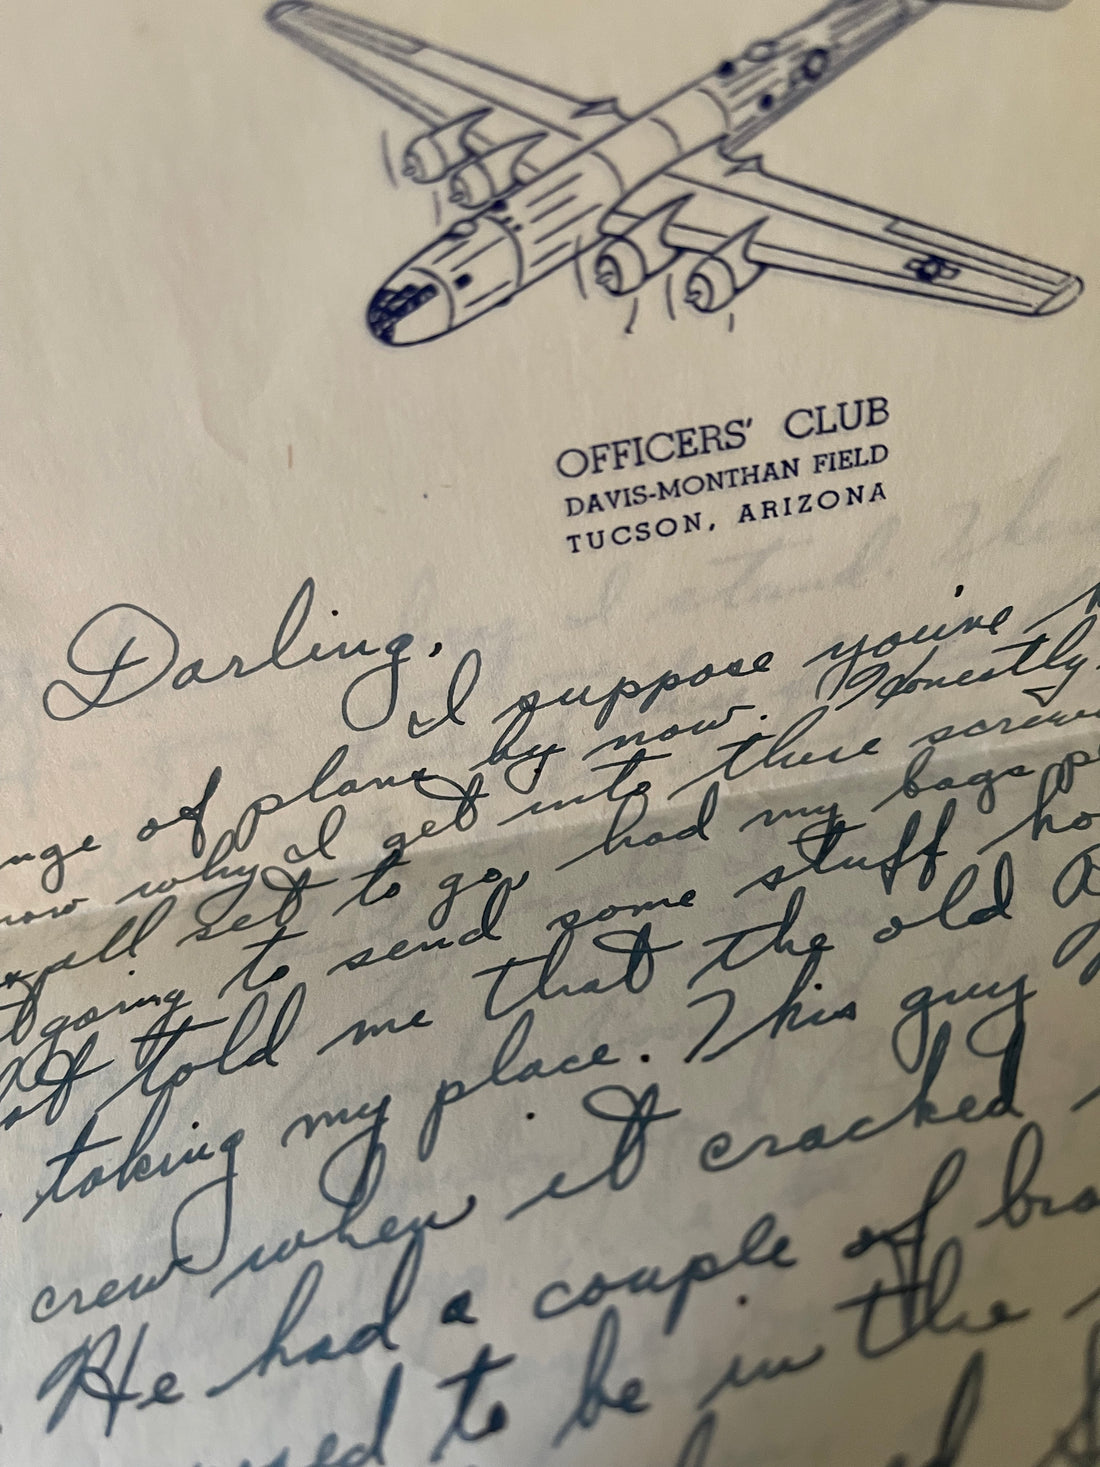 OFFICERS' CLUB
DAVIS-MONTHAN FIELD
TUCSON, ARIZONA
Darling,
I suppose you've
of plans by now. Honestly
why I get into these
all set to go, had my bags
going to send some stuff
told me that the old
taking my place. This guy
crew when it cracked
He had a couple of
to be in the